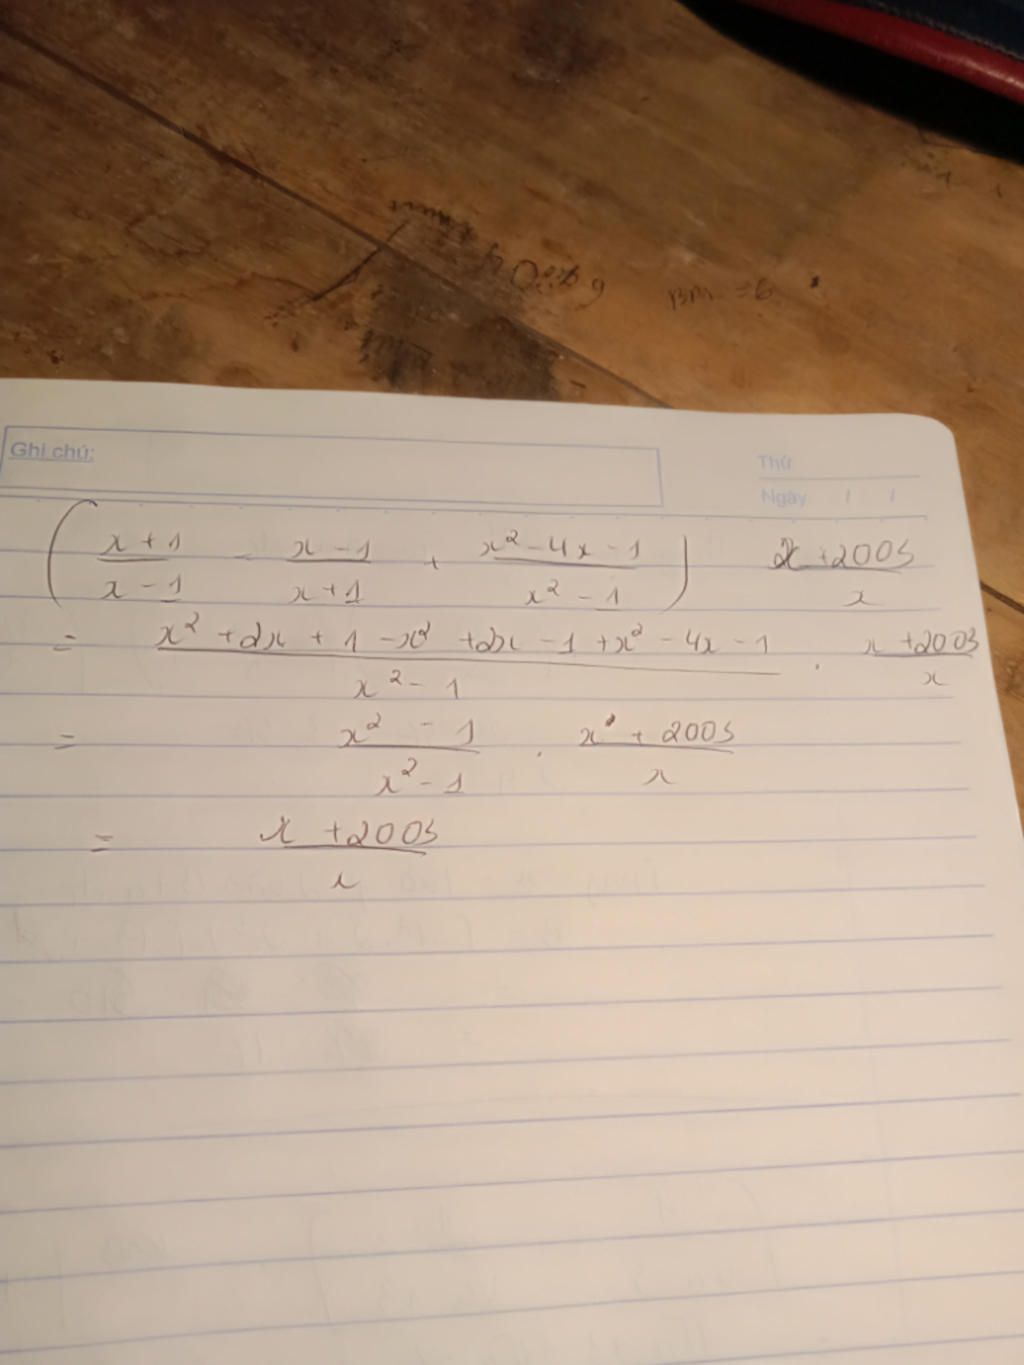 Ghi chú:
Thứ
Ngày / /
( (x + 1)/(x - 1) - (x - 1)/(x + 1) + (x² - 4x - 1)/(x² - 1) ) (x + 2003)/x
= (x² + 2x + 1 - x² + 2x - 1 + x² - 4x - 1)/(x² - 1) . (x + 2003)/x
= (x² - 1)/(x² - 1) . (x + 2003)/x
= (x + 2003)/x